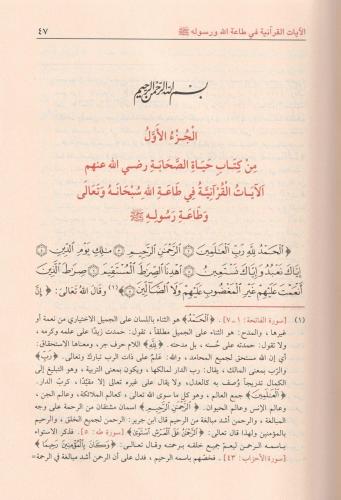 الآيات القرآنية في طاعة الله ورسوله ﷺ ٤٧
بسم الله الرحمن الرحيم
الجُزْءُ الأَوَّلُ
مِنْ كِتَابِ حَيَاةِ الصَّحَابَةِ رضي الله عنهم
الآيَاتُ القُرْآنِيَّةُ فِي طَاعَةِ اللهِ سُبْحَانَهُ وَتَعَالَى
وَطَاعَةِ رَسُولِهِ ﷺ
﴿الْحَمْدُ لِلَّهِ رَبِّ الْعَالَمِينَ ۝ الرَّحْمَنِ الرَّحِيمِ ۝ مَالِكِ يَوْمِ الدِّينِ ۝
إِيَّاكَ نَعْبُدُ وَإِيَّاكَ نَسْتَعِينُ ۝ اهْدِنَا الصِّرَاطَ الْمُسْتَقِيمَ ۝ صِرَاطَ الَّذِينَ
أَنْعَمْتَ عَلَيْهِمْ غَيْرِ الْمَغْضُوبِ عَلَيْهِمْ وَلَا الضَّالِّينَ﴾(١) وقال الله تعالى: ﴿إِنَّ
(١) [سورة الفاتحة: ١ ـ ٧]. ﴿الْحَمْدُ﴾ هو الثناء باللسان على الجميل الاختياري من نعمة أو
غيرها، والمدح: هو الثناء على الجميل مطلقاً، تقول: حمدت زيداً على علمه وكرمه،
ولا تقول: حمدته على حُسنه، بل مدحته. ﴿لِلَّهِ﴾ اللام حرف جر، ومعناها الاستحقاق:
أي إن الله مستحق لجميع المحامد، والله: عَلَمٌ على ذات الرب تبارك وتعالى. ﴿رَبِّ﴾
والرَّب بمعنى المالك، يقال: رب الدار لمالكها، ويكون بمعنى التربية، وهو التبليغ إلى
الكمال تدريجاً وُصف به كالعدل، ولا يقال على غيره تعالى إلا مقيَّداً، كربّ الدار.
﴿الْعَالَمِينَ﴾ جمع العالم، وهو كل ما سوى الله تعالى، كعالم الملائكة، وعالم الجن،
وعالم الإنس وعالم الحيوان. ﴿الرَّحْمَنِ الرَّحِيمِ﴾ اسمان مشتقان من الرحمة على وجه
المبالغة، والرحمن أشد مبالغة من الرحيم قال ابن جرير: الرحمن لجميع الخلق، والرحيم
بالمؤمنين ولهذا قال تعالى: ﴿الرَّحْمَنُ عَلَى الْعَرْشِ اسْتَوَى﴾ [سورة طه: ٥]. فذكر الاستواء
باسمه الرحمن ليعم جميع خلقه برحمته وقال تعالى: ﴿وَكَانَ بِالْمُؤْمِنِينَ رَحِيمًا﴾
[سورة الأحزاب: ٤٣]. فخصّهم باسمه الرحيم، فدل على أن الرحمن أشد مبالغة في الرحمة=